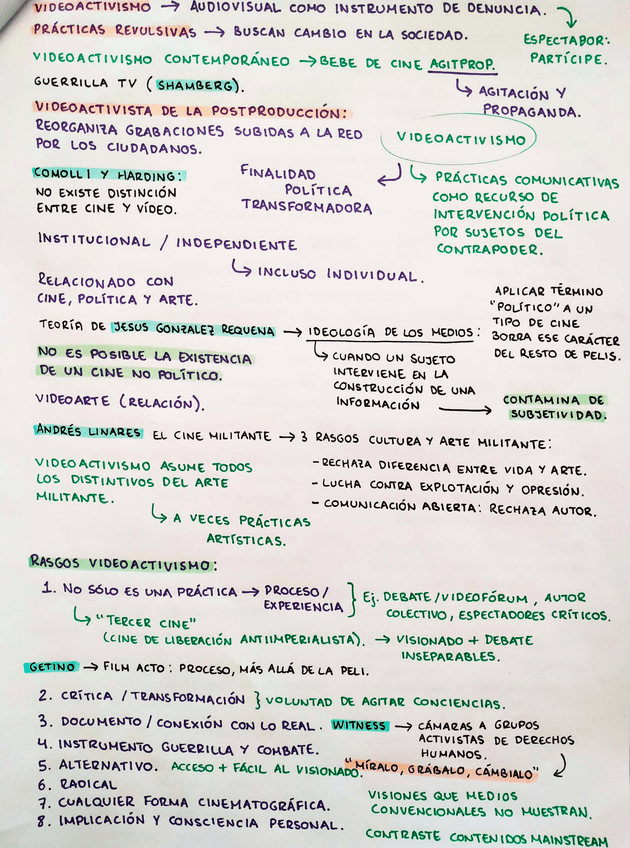 VIDEOACTIVISMO → AUDIOVISUAL COMO INSTRUMENTO DE DENUNCIA.
PRÁCTICAS REVULSIVAS → BUSCAN CAMBIO EN LA SOCIEDAD.
ESPECTADOR:
PARTÍCIPE.
VIDEOACTIVISMO CONTEMPORÁNEO → BEBE DE CINE AGITPROP.
AGITACIÓN Y
PROPAGANDA.
GUERRILLA TV (SHAMBERG).
VIDEOACTIVISTA DE LA POSTPRODUCCIÓN:
REORGANIZA GRABACIONES SUBIDAS A LA RED
POR LOS CIUDADANOS.
VIDEOACTIVISMO
FINALIDAD
POLÍTICA
TRANSFORMADORA
PRÁCTICAS COMUNICATIVAS
COMO RECURSO DE
INTERVENCIÓN POLÍTICA
POR SUJETOS DEL
CONTRAPODER.
COMOLLI Y HARDING:
NO EXISTE DISTINCIÓN
ENTRE CINE Y VÍDEO.
INSTITUCIONAL / INDEPENDIENTE
INCLUSO INDIVIDUAL.
RELACIONADO CON
CINE, POLÍTICA Y ARTE.
APLICAR TÉRMINO
"POLÍTICO" A UN
TIPO DE CINE
BORRA ESE CARÁCTER
DEL RESTO DE PELIS.
TEORÍA DE JESUS GONZALEZ REQUENA → IDEOLOGÍA DE LOS MEDIOS:
CUANDO UN SUJETO
INTERVIENE EN LA
CONSTRUCCIÓN DE UNA
INFORMACIÓN
CONTAMINA DE
SUBJETIVIDAD.
NO ES POSIBLE LA EXISTENCIA
DE UN CINE NO POLÍTICO.
VIDEOARTE (RELACIÓN).
ANDRÉS LINARES EL CINE MILITANTE → 3 RASGOS CULTURA Y ARTE MILITANTE:
- RECHAZA DIFERENCIA ENTRE VIDA Y ARTE.
- LUCHA CONTRA EXPLOTACIÓN Y OPRESIÓN.
- COMUNICACIÓN ABIERTA: RECHAZA AUTOR.
VIDEOACTIVISMO ASUME TODOS
LOS DISTINTIVOS DEL ARTE
MILITANTE.
A VECES PRÁCTICAS
ARTÍSTICAS.
RASGOS VIDEOACTIVISMO:
1. NO SÓLO ES UNA PRÁCTICA → PROCESO /
EXPERIENCIA
Ej. DEBATE / VIDEOFÓRUM, AUTOR
COLECTIVO, ESPECTADORES CRÍTICOS.
"TERCER CINE"
(CINE DE LIBERACIÓN ANTIIMPERIALISTA). → VISIONADO + DEBATE
INSEPARABLES.
GETINO → FILM ACTO: PROCESO, MÁS ALLÁ DE LA PELI.
2. CRÍTICA / TRANSFORMACIÓN } VOLUNTAD DE AGITAR CONCIENCIAS.
3. DOCUMENTO / CONEXIÓN CON LO REAL. WITNESS → CÁMARAS A GRUPOS
ACTIVISTAS DE DERECHOS
HUMANOS.
4. INSTRUMENTO GUERRILLA Y COMBATE.
5. ALTERNATIVO. ACCESO + FÁCIL AL VISIONADO. "MÍRALO, GRÁBALO, CÁMBIALO"
6. RADICAL
7. CUALQUIER FORMA CINEMATOGRÁFICA.
8. IMPLICACIÓN Y CONSCIENCIA PERSONAL.
VISIONES QUE MEDIOS
CONVENCIONALES NO MUESTRAN.
CONTRASTE CONTENIDOS MAINSTREAM